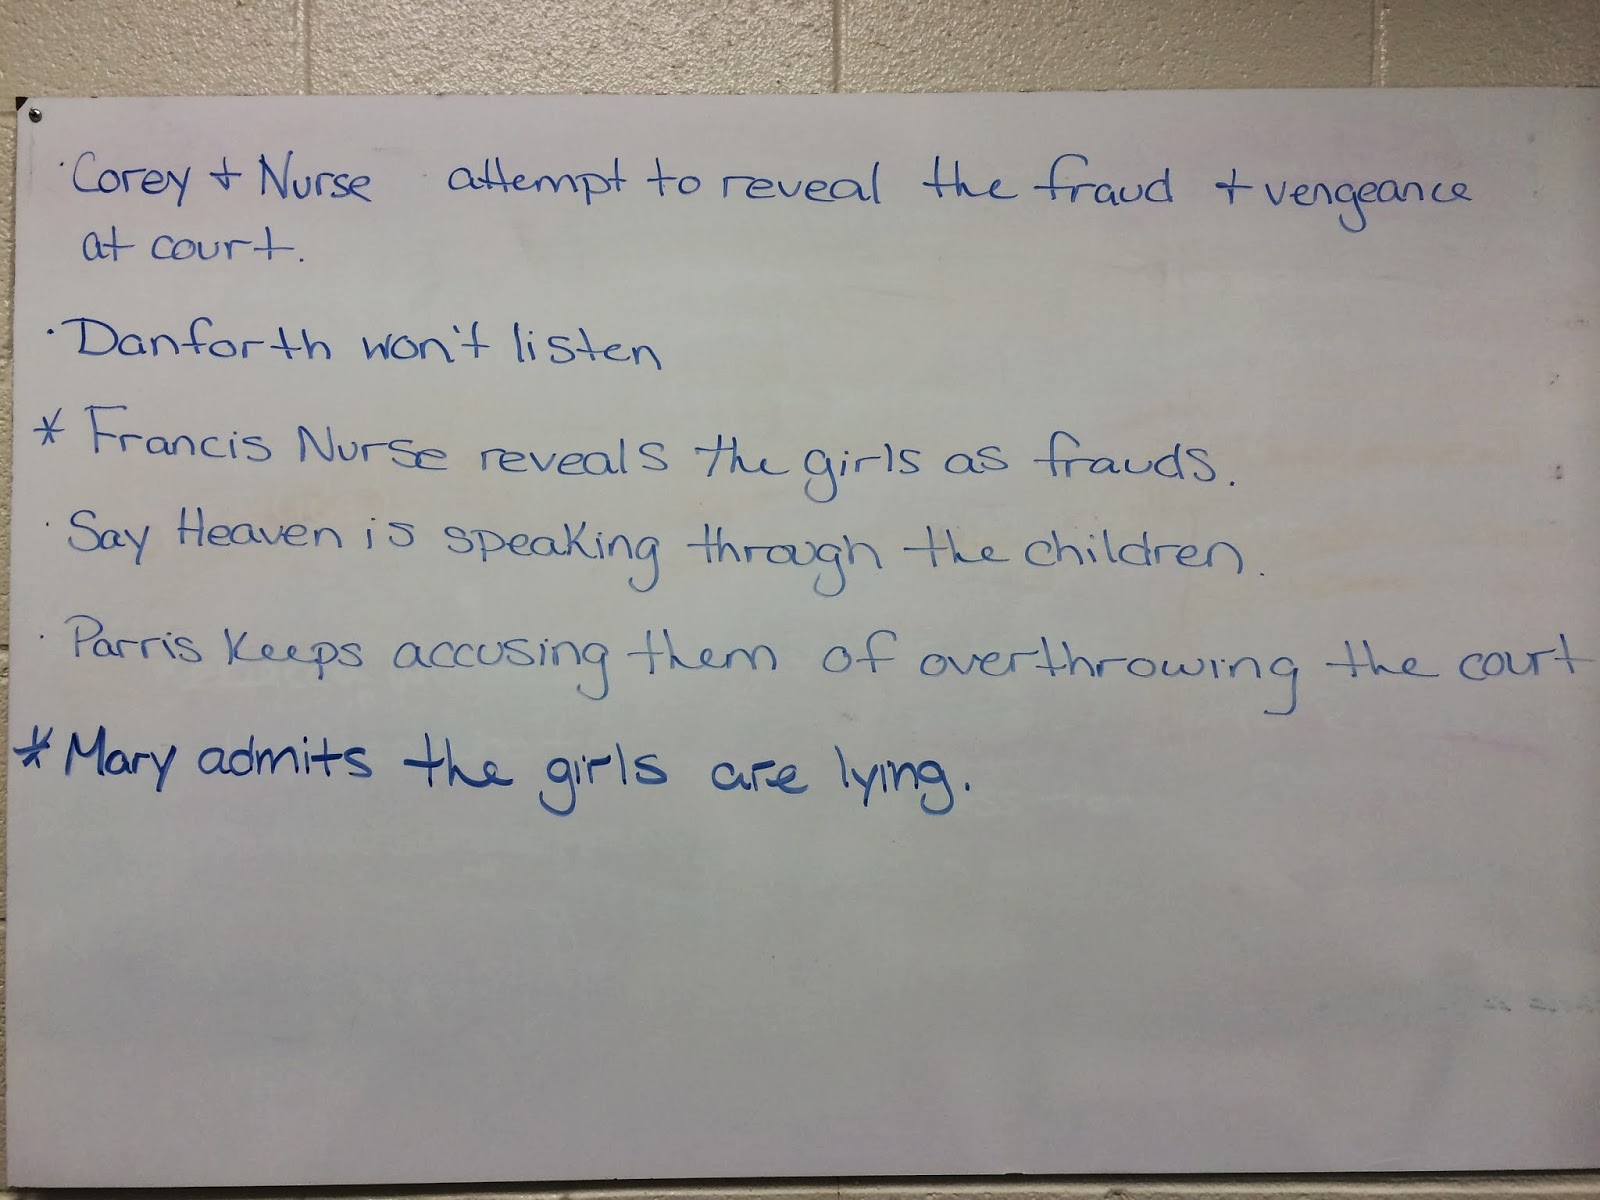 · Corey + Nurse attempt to reveal the fraud + vengeance
at court.
· Danforth won't listen
* Francis Nurse reveals the girls as frauds.
· Say Heaven is speaking through the children.
· Parris keeps accusing them of overthrowing the court
* Mary admits the girls are lying.